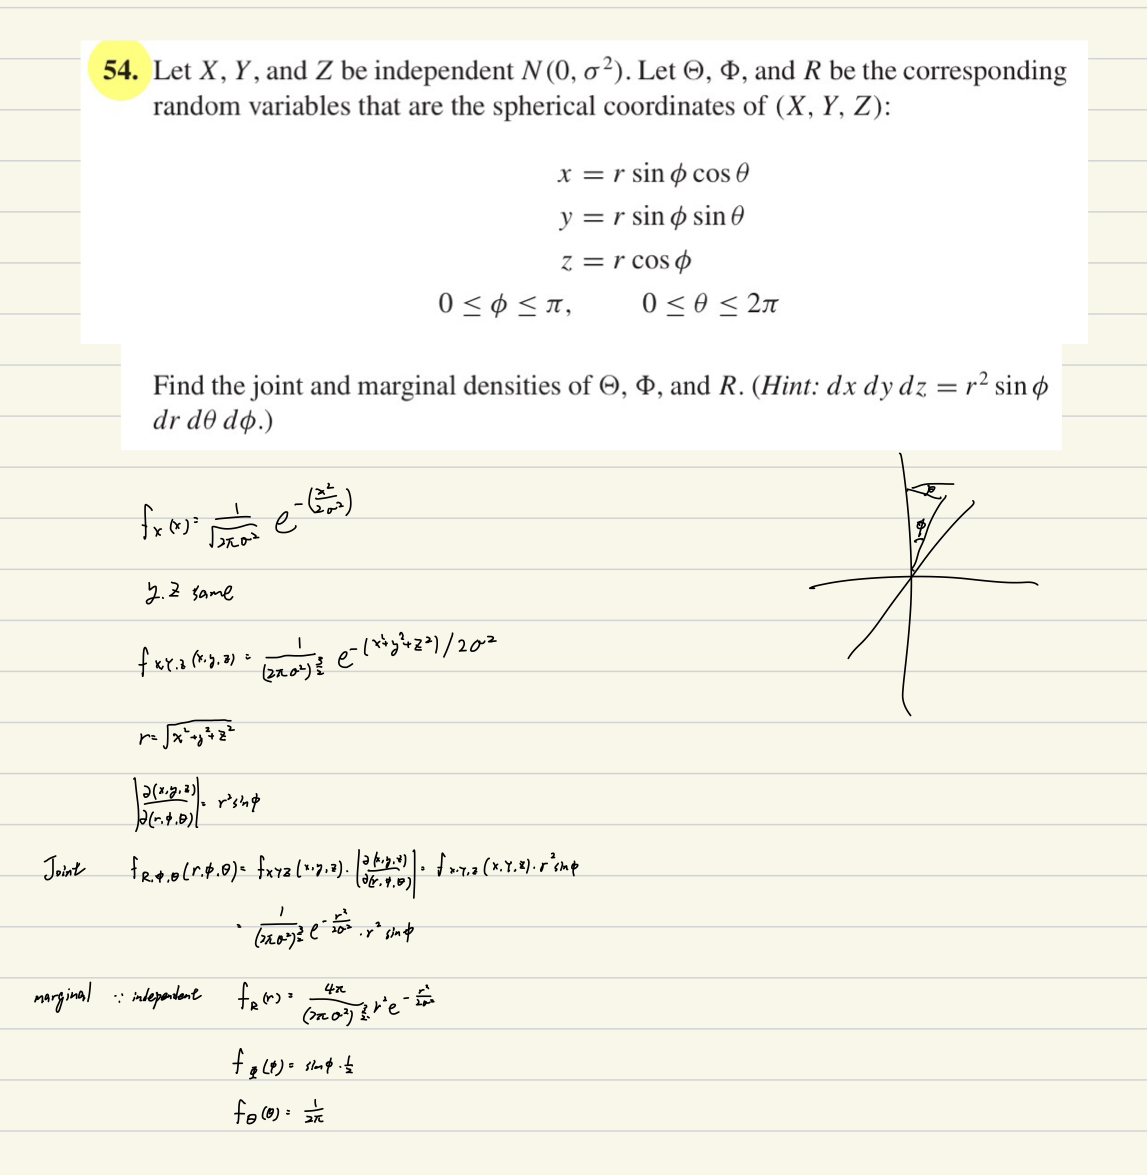 54. Let X, Y, and Z be independent N(0, σ²). Let Θ, Φ, and R be the corresponding
random variables that are the spherical coordinates of (X, Y, Z):
x = r sin φ cos θ
y = r sin φ sin θ
z = r cos φ
0 ≤ φ ≤ π, 0 ≤ θ ≤ 2π
Find the joint and marginal densities of Θ, Φ, and R. (Hint: dx dy dz = r² sin φ
dr dθ dφ.)
θ
φ
f_X(x) = 1/√(2πσ²) e^-(x²/2σ²)
y.z same
f_X.Y.Z(x.y.z) = 1/(2πσ²)^(3/2) e^-(x²+y²+z²)/2σ²
r = √(x²+y²+z²)
|∂(x.y.z)/∂(r.φ.θ)| = r² sin φ
Joint f_R.Φ.Θ(r.φ.θ) = f_XYZ(x.y.z) · |∂(x.y.z)/∂(r.φ.θ)| = f_X.Y.Z(x.Y.z) · r² sin φ
= 1/(2πσ²)^(3/2) e^(-r²/2σ²) · r² sin φ
marginal ∵ independent f_R(r) = 4π/(2πσ²)^(3/2) r² e^(-r²/2σ²)
f_Φ(φ) = sin φ · 1/2
f_Θ(θ) = 1/2π